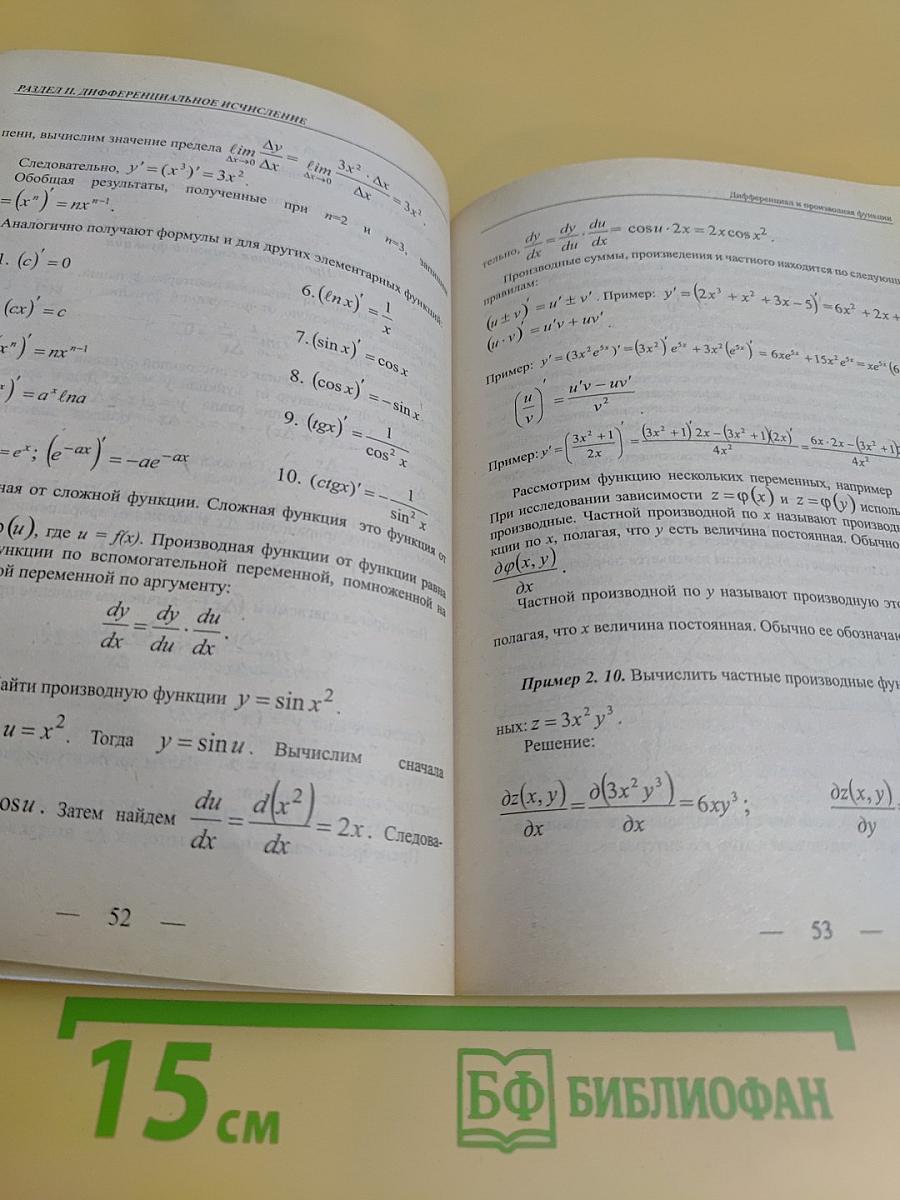 РАЗДЕЛ II. ДИФФЕРЕНЦИАЛЬНОЕ ИСЧИСЛЕНИЕ
пени, вычислим значение предела lim Δx→0 Δy/Δx = lim Δx→0 3x² · Δx/Δx = 3x².
Следовательно, y′ = (x³)′ = 3x².
Обобщая результаты, полученные при n=2 и n=3,
= (xⁿ)′ = nxⁿ⁻¹.
Аналогично получают формулы и для других элементарных функций:
1. (c)′ = 0
(cx)′ = c
xⁿ)′ = nxⁿ⁻¹
ˣ)′ = aˣ ℓna
= eˣ; (e⁻ᵃˣ)′ = −ae⁻ᵃˣ
6. (ℓn x)′ = 1/x
7. (sin x)′ = cos x
8. (cos x)′ = − sin x
9. (tgx)′ = 1/cos² x
10. (ctgx)′ = − 1/sin² x
ная от сложной функции. Сложная функция это функция от
(u), где u = f(x). Производная функции от функции равна
ункции по вспомогательной переменной, помноженной на
ой переменной по аргументу:
dy/dx = dy/du · du/dx.
айти производную функции y = sin x².
u = x². Тогда y = sin u. Вычислим сначала
osu. Затем найдем du/dx = d(x²)/dx = 2x. Следова-
— 52 —
Дифференциал и производная функции
тельно, dy/dx = dy/du · du/dx = cosu · 2x = 2x cos x².
Производные суммы, произведения и частного находится по следующи
правилам:
(u ± v)′ = u′ ± v′. Пример: y′ = (2x³ + x² + 3x − 5)′ = 6x² + 2x +
(u · v)′ = u′v + uv′
Пример: y′ = (3x²e⁵ˣ)′ = (3x²)′ e⁵ˣ + 3x²(e⁵ˣ)′ = 6xe⁵ˣ + 15x²e⁵ˣ = xe⁵ˣ(6
(u/v)′ = u′v − uv′/v².
Пример: y′ = (3x² + 1/2x)′ = (3x² + 1)′ 2x − (3x² + 1)(2x)′/4x² = 6x · 2x − (3x² + 1)/4x²
Рассмотрим функцию нескольких переменных, например
При исследовании зависимости z = φ(x) и z = φ(y) исполь
производные. Частной производной по x называют производ
кции по x, полагая, что y есть величина постоянная. Обычно
∂φ(x, y)/∂x.
Частной производной по y называют производную это
полагая, что x величина постоянная. Обычно ее обозначаю
Пример 2. 10. Вычислить частные производные фун
ных: z = 3x² y³.
Решение:
∂z(x, y)/∂x = ∂(3x² y³)/∂x = 6xy³; ∂z(x, y)/∂y =
— 53 —
15 см
БФ БИБЛИОФАН